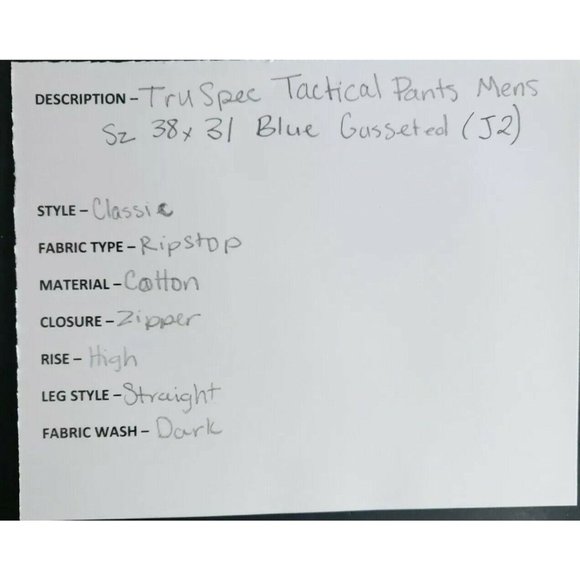 DESCRIPTION – TruSpec Tactical Pants Mens
Sz 38x31 Blue Gusseted (J2)
STYLE – Classic
FABRIC TYPE – Ripstop
MATERIAL – Cotton
CLOSURE – Zipper
RISE – High
LEG STYLE – Straight
FABRIC WASH – Dark